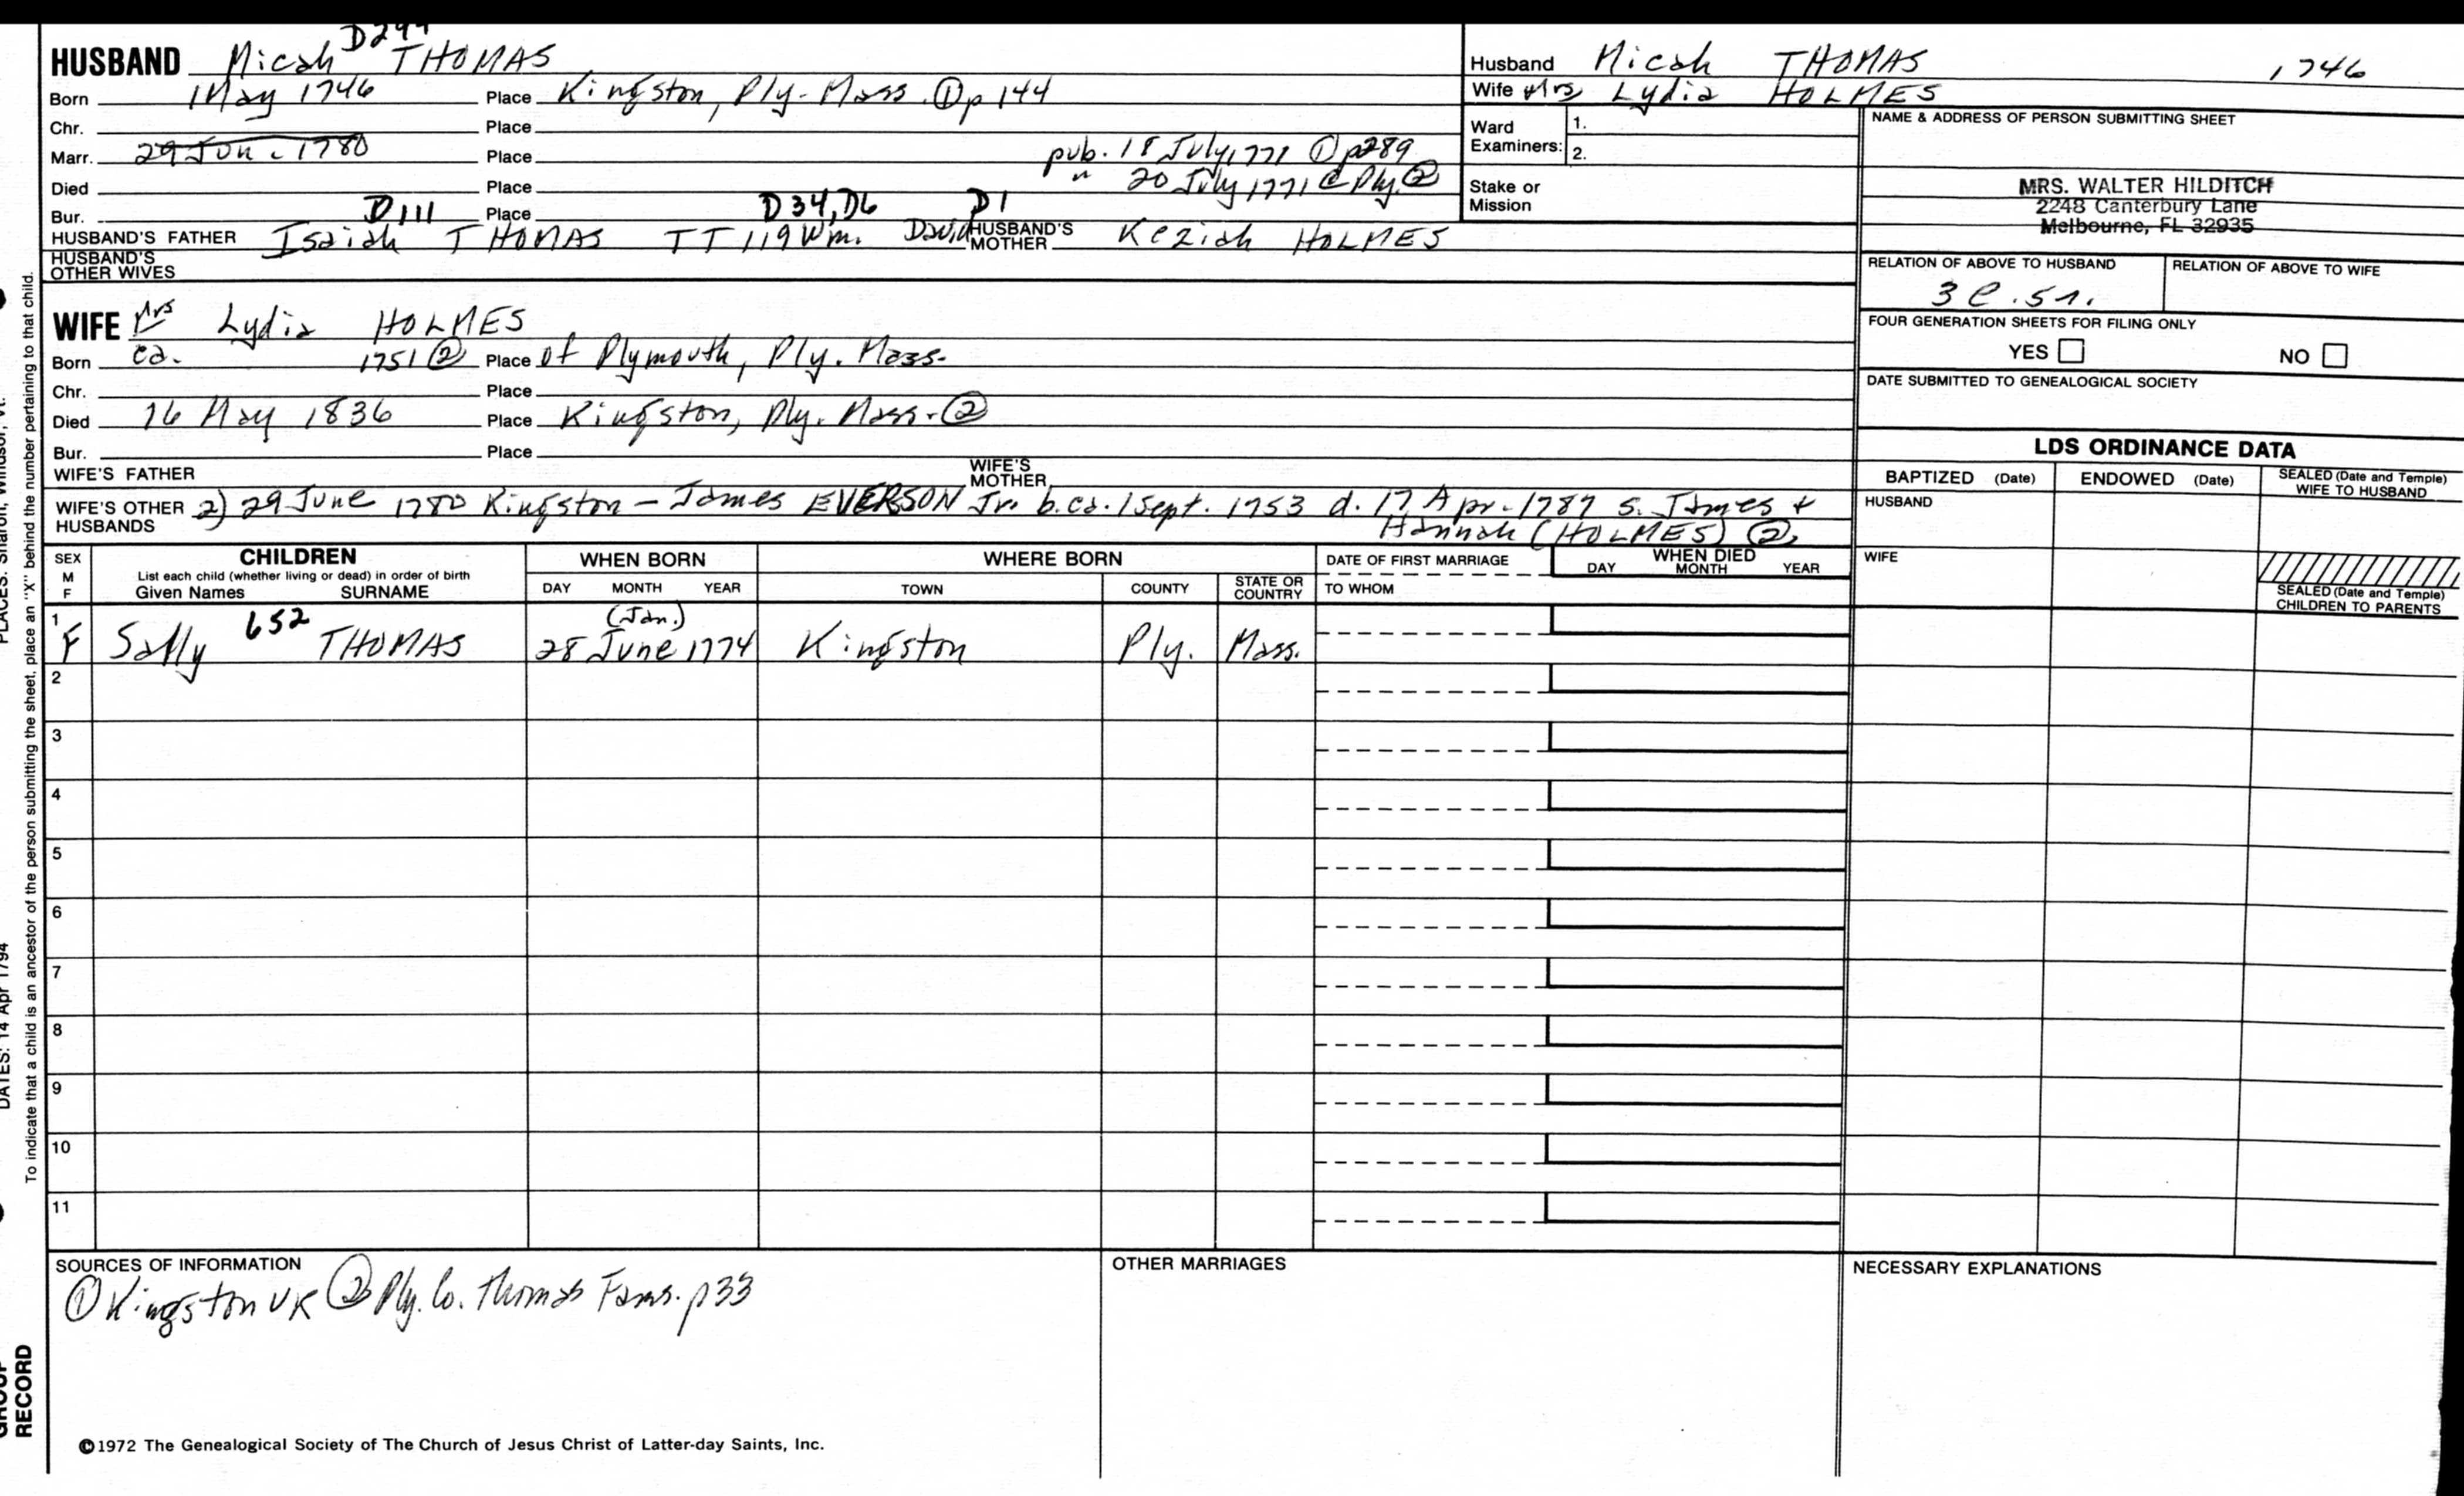 D294
HUSBAND Micah THOMAS
Born 1 May 1746 Place Kingston, Ply. Mass. ① p 144
Chr. Place
Marr. 29 Jun. 1780 Place pub. 18 July 1771 ① p289
" 20 July 1771 @ Ply. ②
Died Place
Bur. D111 Place D34, D6 D1
HUSBAND'S FATHER Isaiah THOMAS TT 119 Wm. David HUSBAND'S MOTHER Keziah HOLMES
HUSBAND'S OTHER WIVES
WIFE Mrs Lydia HOLMES
Born ca. 1751 ② Place of Plymouth, Ply. Mass.
Chr. Place
Died 16 May 1836 Place Kingston, Ply. Mass. ②
Bur. Place
WIFE'S FATHER WIFE'S MOTHER
WIFE'S OTHER HUSBANDS 2) 29 June 1780 Kingston – James EVERSON Jr. b. ca. 1 Sept. 1753 d. 17 Apr. 1787 s. James +
Hannah (HOLMES) ②
Husband Micah THOMAS 1746
Wife Mrs Lydia HOLMES
Ward Examiners: 1.
2.
Stake or Mission
NAME & ADDRESS OF PERSON SUBMITTING SHEET
MRS. WALTER HILDITCH
2248 Canterbury Lane
Melbourne, FL 32935
RELATION OF ABOVE TO HUSBAND RELATION OF ABOVE TO WIFE
3 C. 5 r.
FOUR GENERATION SHEETS FOR FILING ONLY
YES NO
DATE SUBMITTED TO GENEALOGICAL SOCIETY
LDS ORDINANCE DATA
BAPTIZED (Date) ENDOWED (Date) SEALED (Date and Temple) WIFE TO HUSBAND
HUSBAND
WIFE
SEALED (Date and Temple)
CHILDREN TO PARENTS
SEX M F
CHILDREN
List each child (whether living or dead) in order of birth
Given Names SURNAME
WHEN BORN
DAY MONTH YEAR
WHERE BORN
TOWN COUNTY STATE OR COUNTRY
DATE OF FIRST MARRIAGE
TO WHOM
WHEN DIED
DAY MONTH YEAR
1 F Sally 652 THOMAS (Jan.) 28 June 1774 Kingston Ply. Mass.
2
3
4
5
6
7
8
9
10
11
SOURCES OF INFORMATION
① Kingston VR ② Ply. Co. Thomas Fams. p33
OTHER MARRIAGES
NECESSARY EXPLANATIONS
©1972 The Genealogical Society of The Church of Jesus Christ of Latter-day Saints, Inc.
To indicate that a child is an ancestor of the person submitting the sheet, place an "X" behind the number pertaining to that child.
PLACES: Sharon, Windsor, Vt.
DATES: 14 Apr 1794
GROUP
RECORD